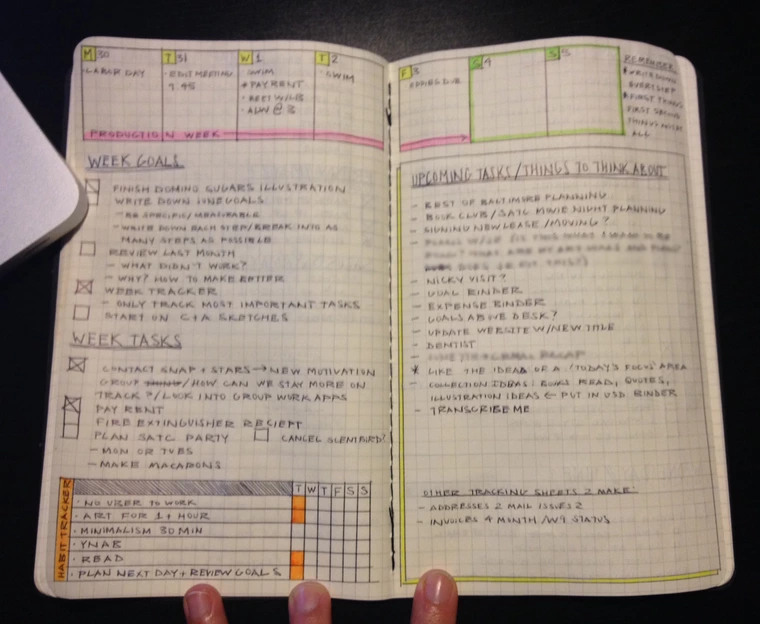 M 30
T 31
W 1
T 2
F 3
S 4
S 5
- LABOR DAY
- EDIT MEETING
9:45
SWIM
* PAY RENT
- SWIM
EDDIES DUE
PRODUCTION WEEK
REMEMBER:
WRITE DOWN
FIRST THING
FIRST
ALL
WEEK GOALS
FINISH DOMINO SUGARS ILLUSTRATION
WRITE DOWN GOALS
- BE SPECIFIC/MEASURABLE
- WRITE DOWN EACH STEP/BREAK INTO AS
MANY STEPS AS POSSIBLE
REVIEW LAST MONTH
- WHAT DIDN'T WORK?
- WHY? HOW TO MAKE BETTER
WEEK TRACKER
- ONLY TRACK MOST IMPORTANT TASKS
START ON C+A SKETCHES
WEEK TASKS
CONTACT SNAP + STARS → NEW MOTIVATION
GROUP /HOW CAN WE STAY MORE ON
TRACK?/LOOK INTO GROUP WORK APPS
PAY RENT
FIRE EXTINGUISHER RECIEPT
PLAN SATC PARTY
CANCEL SCENTBIRD?
- MON OR TUES
- MAKE MACARONS
HABIT TRACKER
T W T F S S
· NO UBER TO WORK
· ART FOR 1+ HOUR
· MINIMALISM 30 MIN
· YNAB
· READ
· PLAN NEXT DAY + REVIEW GOALS
UPCOMING TASKS/THINGS TO THINK ABOUT
- BEST OF BALTIMORE PLANNING
- BOOK CLUB/SATC MOVIE NIGHT PLANNING
- SIGNING NEW LEASE/MOVING?
- NICKY VISIT?
- USUAL BINDER
- EXPENSE BINDER
- GOALS ABOVE DESK?
- UPDATE WEBSITE W/NEW TITLE
- DENTIST
* LIKE THE IDEA OF A "TODAY'S FOCUS" AREA
- COLLECTION IDEAS: BOOKS READ, QUOTES,
ILLUSTRATION IDEAS ← PUT IN USD BINDER
- TRANSCRIBE ME
OTHER TRACKING SHEETS 2 MAKE:
- ADDRESSES 2 MAIL ISSUES 2
- INVOICES 4 MONTH/W9 STATUS